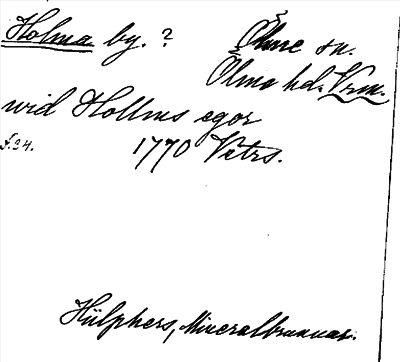 Holma by. ? Ölme sn.
Ölme hd. Vrm.
wid Hollms egor
s. 34. 1770 Vetrs.
Hülphers, Mineralbrunnar.